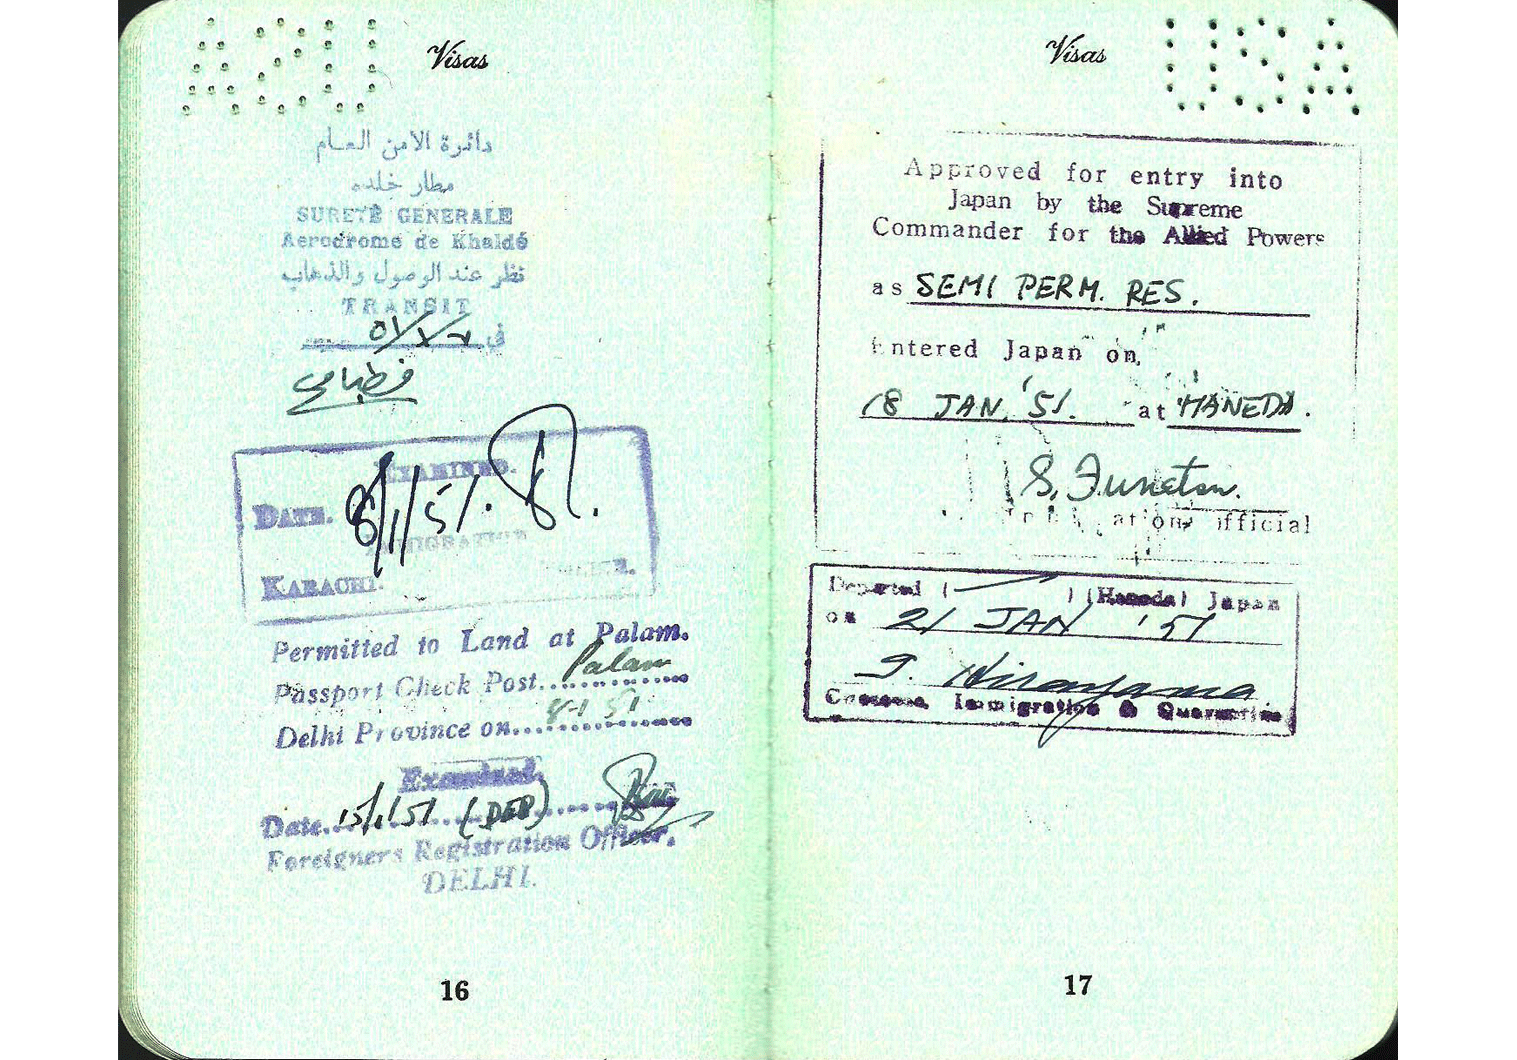 Visas
دائرة الامن العام
مطار خلده
SURETÉ GENERALE
Aerodrome de Khaldé
نظر عند الوصول والذهاب
TRANSIT
فى
EXAMINED.
DATE. 8/1/51.
IMMIGRATION
KARACHI.
Permitted to Land at Palam.
Passport Check Post Palam
Delhi Province on 8-1 51
Examined.
Date 15/1/51 (DEP)
Foreigners Registration Officer.
DELHI.
16
Visas
USA
Approved for entry into
Japan by the Supreme
Commander for the Allied Powers
as SEMI PERM. RES.
Entered Japan on
18 JAN. '51. at HANEDA.
S. Funatsu.
Immigration Official
Departed ( ) (Haneda) Japan
on 21 JAN '51
Hirayama
Customs, Immigration & Quarantine
17